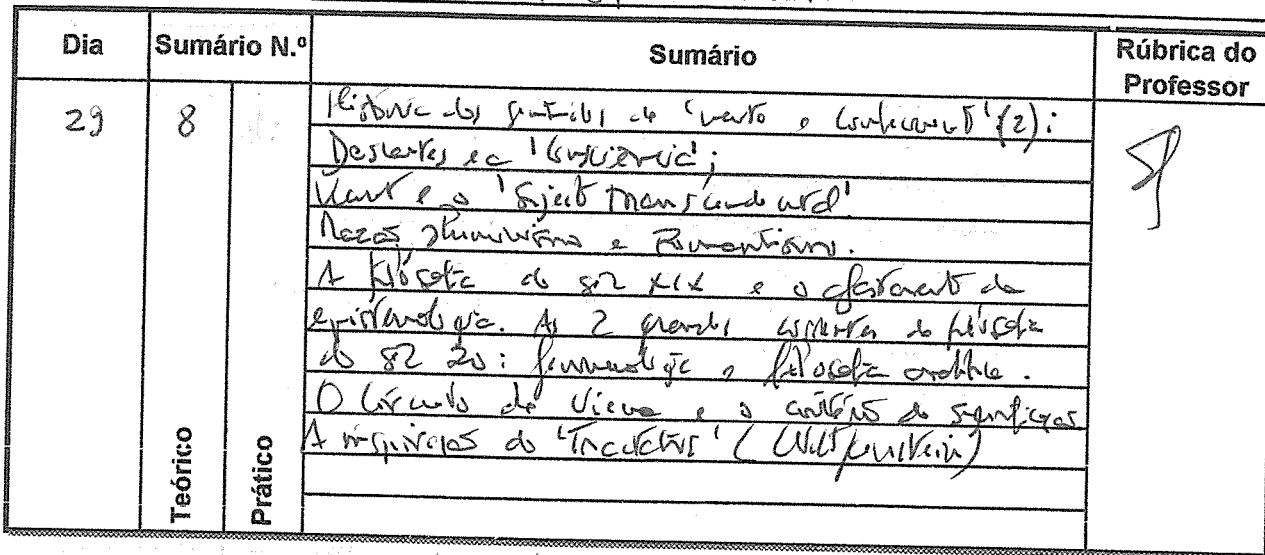 Dia Sumário N.º Sumário Rúbrica do Professor
29 8
História dos sentidos de 'mente e conhecimento' (2):
Descartes e a 'Consciência';
Kant e o 'Sujeito Transcendental'
Razão, Iluminismo e Romantismo.
A filosofia do séc XIX e o afastamento da
epistemologia. As 2 grandes correntes da filosofia
do séc 20: fenomenologia e filosofia analítica.
O Círculo de Viena e o critério de significação
A inspiração do 'Tractatus' (Wittgenstein)
Teórico
Prático